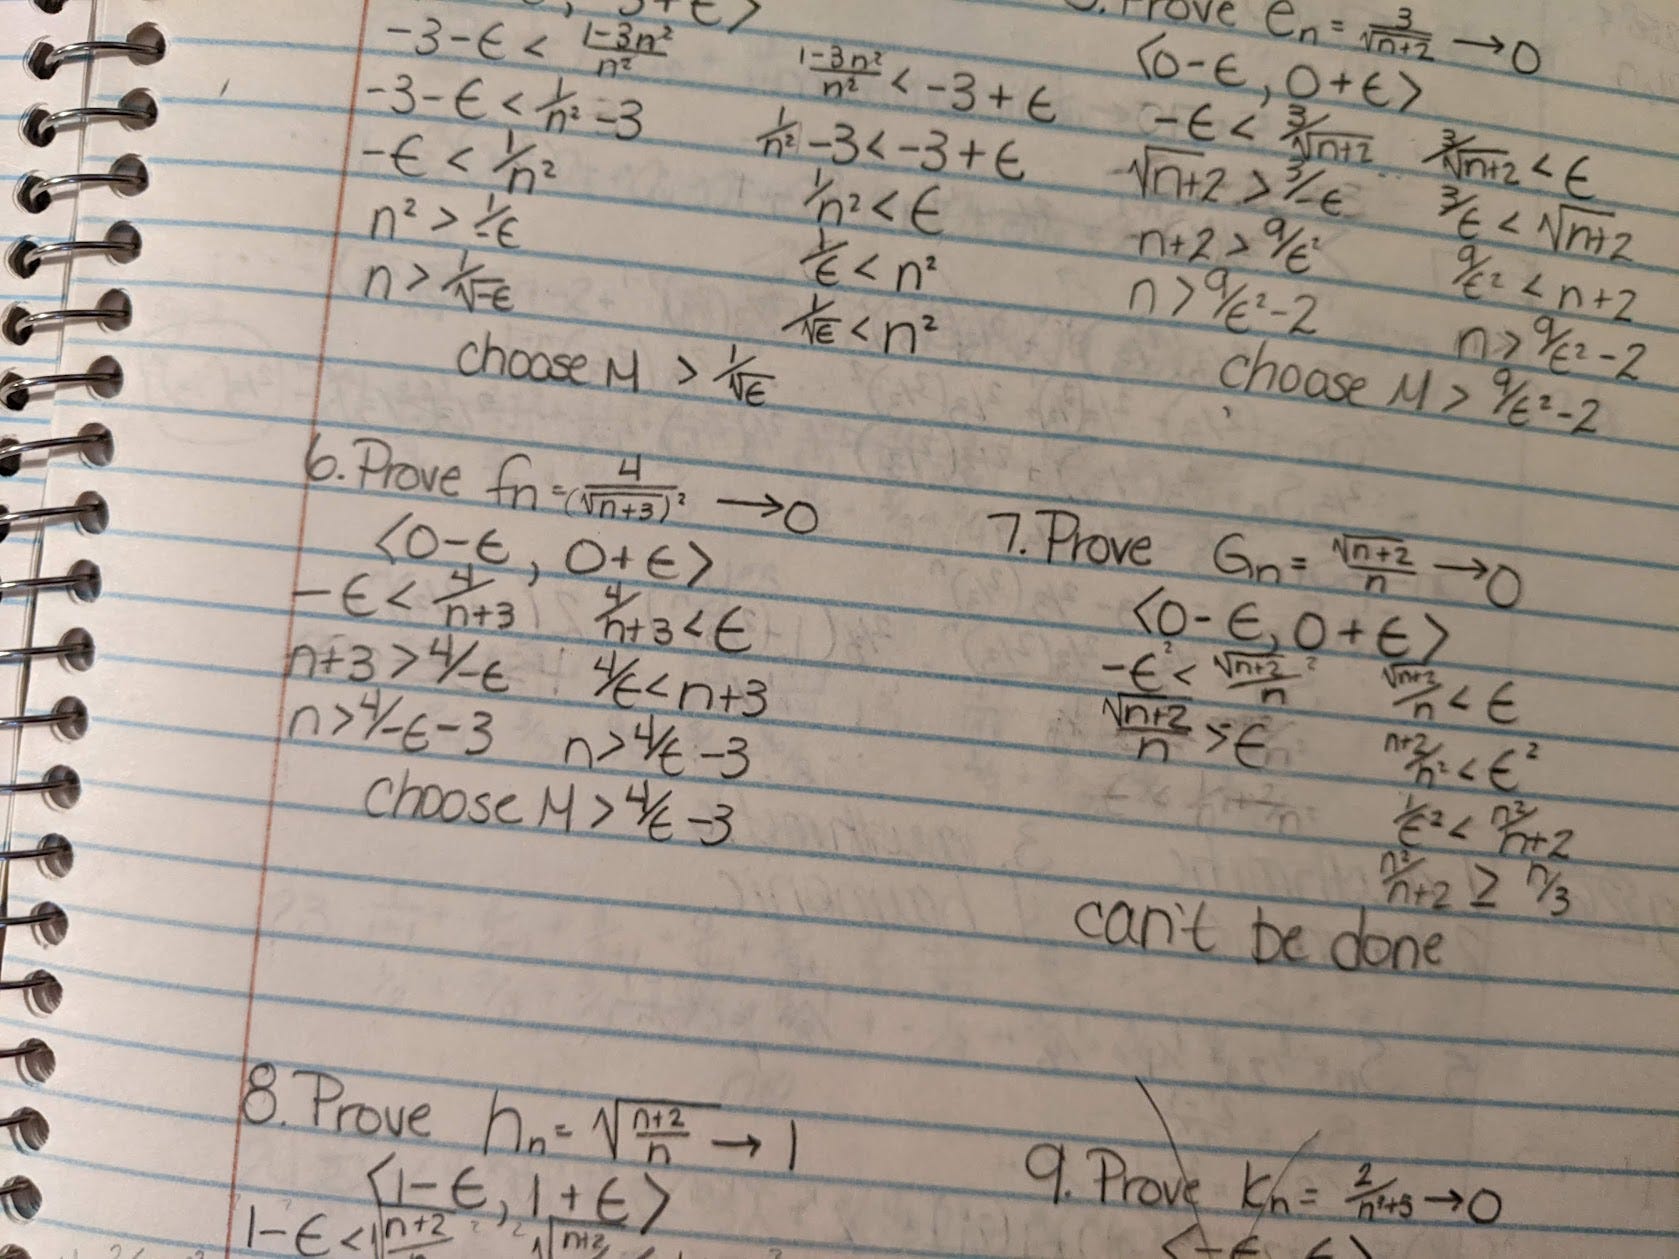 -3-ϵ < 1-3n²/n²
-3-ϵ < 1/n² -3
-ϵ < 1/n²
n² > 1/-ϵ
n > 1/√-ϵ
1-3n²/n² < -3+ϵ
1/n² -3 < -3+ϵ
1/n² < ϵ
1/ϵ < n²
1/√ϵ < n²
choose M > 1/√ϵ
Prove en = 3/√n+2 → 0
⟨0-ϵ, 0+ϵ⟩
-ϵ < 3/√n+2
√n+2 > 3/-ϵ
n+2 > 9/ϵ²
n > 9/ϵ² -2
3/√n+2 < ϵ
3/ϵ < √n+2
9/ϵ² < n+2
n > 9/ϵ² -2
choose M > 9/ϵ² -2
6. Prove fn = 4/(√n+3)² → 0
⟨0-ϵ, 0+ϵ⟩
-ϵ < 4/n+3
n+3 > 4/-ϵ
n > 4/-ϵ -3
4/n+3 < ϵ
4/ϵ < n+3
n > 4/ϵ -3
choose M > 4/ϵ -3
7. Prove Gn = √n+2/n → 0
⟨0-ϵ, 0+ϵ⟩
-ϵ² < √n+2²/n
√n+2/n > ϵ
√n+2/n < ϵ
n+2/n² < ϵ²
1/ϵ² < n²/n+2
n²/n+2 ≥ n/3
can't be done
8. Prove hn = √n+2/n → 1
⟨1-ϵ, 1+ϵ⟩
1-ϵ < √n+2
√n+2
9. Prove Kn = 2/n²+5 → 0